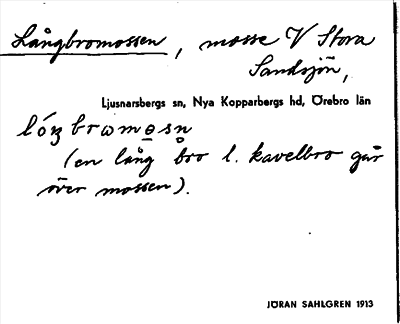 Långbromossen, mosse V Stora
Sandsjön,
Ljusnarsbergs sn, Nya Kopparbergs hd, Örebro län
(en lång bro l. kavelbro går
över mossen).
JÖRAN SAHLGREN 1913